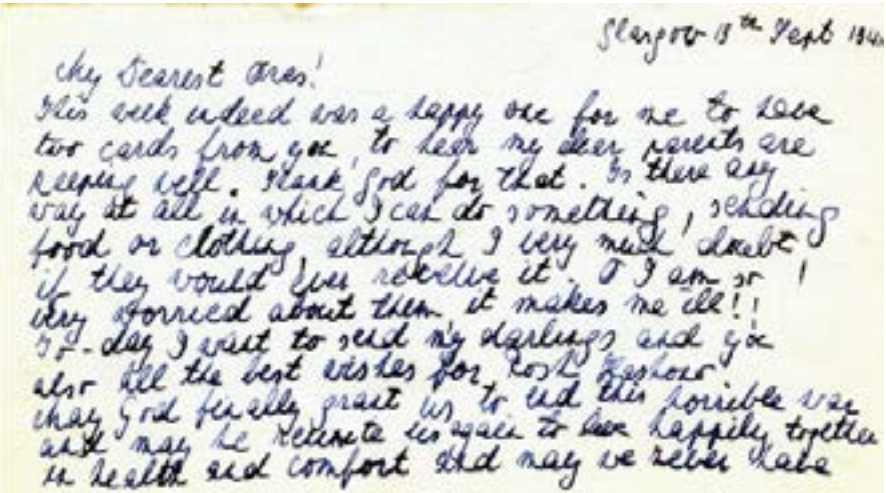 Glasgow 13th Sept 194
My Dearest Aras!
This week indeed was a happy one for me to have
two cards from you, to hear my dear parents are
keeping well. Thank God for that. Is there any
way at all in which I can do something, sending
food or clothing, although I very much doubt
if they would ever receive it. O I am so !
very worried about them, it makes me ill!!
To-day I want to send my darlings and you
also all the best wishes for Rosh Hashono
may God finally grant us to end this horrible war
and may he reunite us again to live happily together
in health and comfort and may we never have